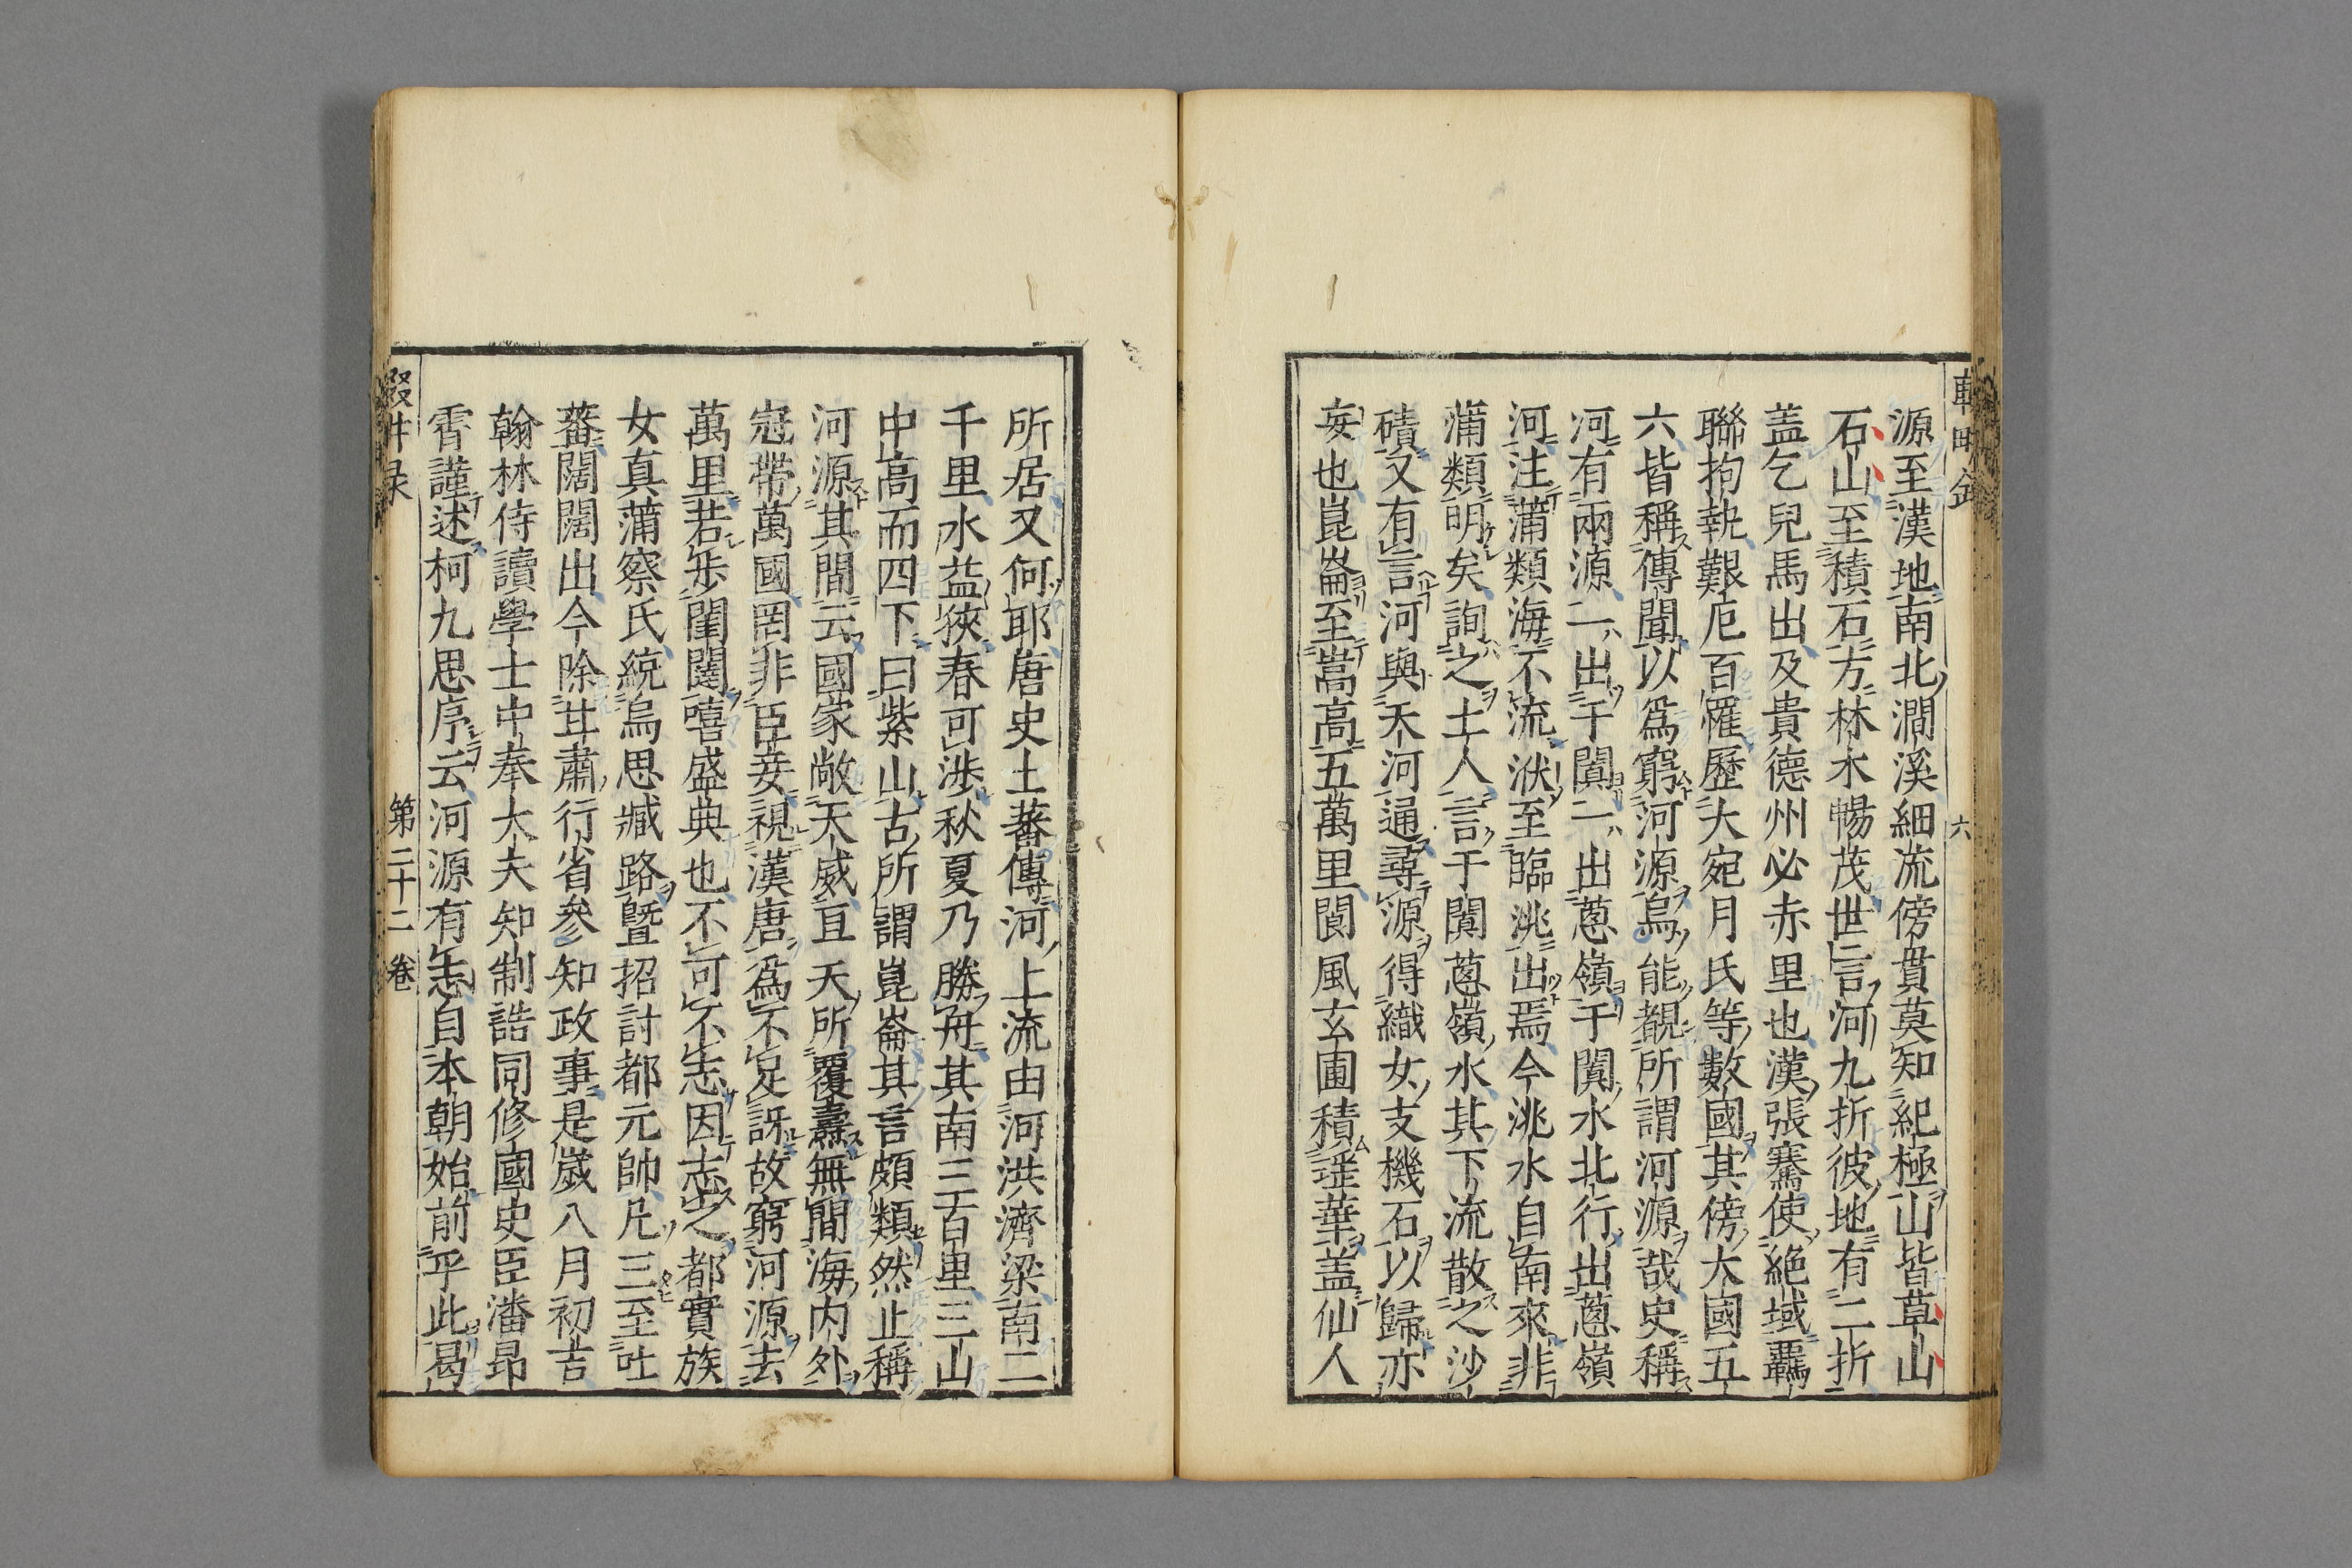 源至漢地南北澗溪細流傍貫莫知紀極山皆草山
石山至積石方林木暢茂世言河九折彼地有二折
盖乞兒馬出及貴德州必赤里也漢張騫使絶域羈
聯拘執艱厄百罹歷大宛月氏等數國其傍大國五
六皆稱傳聞以爲窮河源烏能覩所謂河源哉史稱
河有兩源一出于闐一出蔥嶺于闐水北行出蔥嶺
河注蒲類海不流洑至臨洮出焉今洮水自南來非
蒲類明矣詢之土人言于闐蔥嶺水其下流散之沙
磧又有言河與天河通尋源得織女支機石以歸亦
妄也崑崙至嵩高五萬里閬風玄圃積瑤華盖仙人
所居又何耶唐史土蕃傳河上流由河洪濟梁南二
千里水益狹春可涉秋夏乃勝舟其南三百里三山
中高而四下曰紫山古所謂崑崙其言頗類然止稱
河源其間云國家敞天威亘天所覆燾無間海内外
冠帶萬國罔非臣妾視漢唐爲不足訝故窮河源去
萬里若步閨闥嘻盛典也不可不志因志之都實族
女真蒲察氏統烏思臧路曁招討都元帥凡三至吐
蕃闊闊出今除甘肅行省參知政事是歲八月初吉
翰林侍讀學士中奉大夫知制誥同修國史臣潘昂
霄謹述柯九思序云河源有志自本朝始前乎此曷
第二十二卷
六